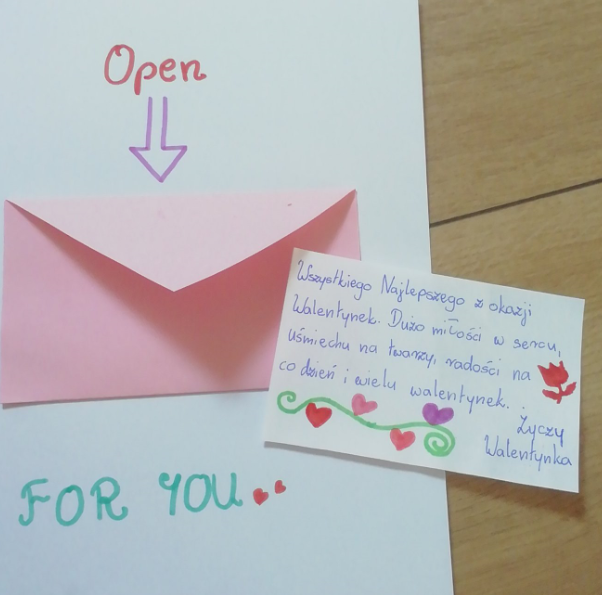 Open
Wszystkiego Najlepszego z okazji
Walentynek. Dużo miłości w sercu,
uśmiechu na twarzy, radości na
co dzień i wielu walentynek.
Życzy
Walentynka
FOR YOU